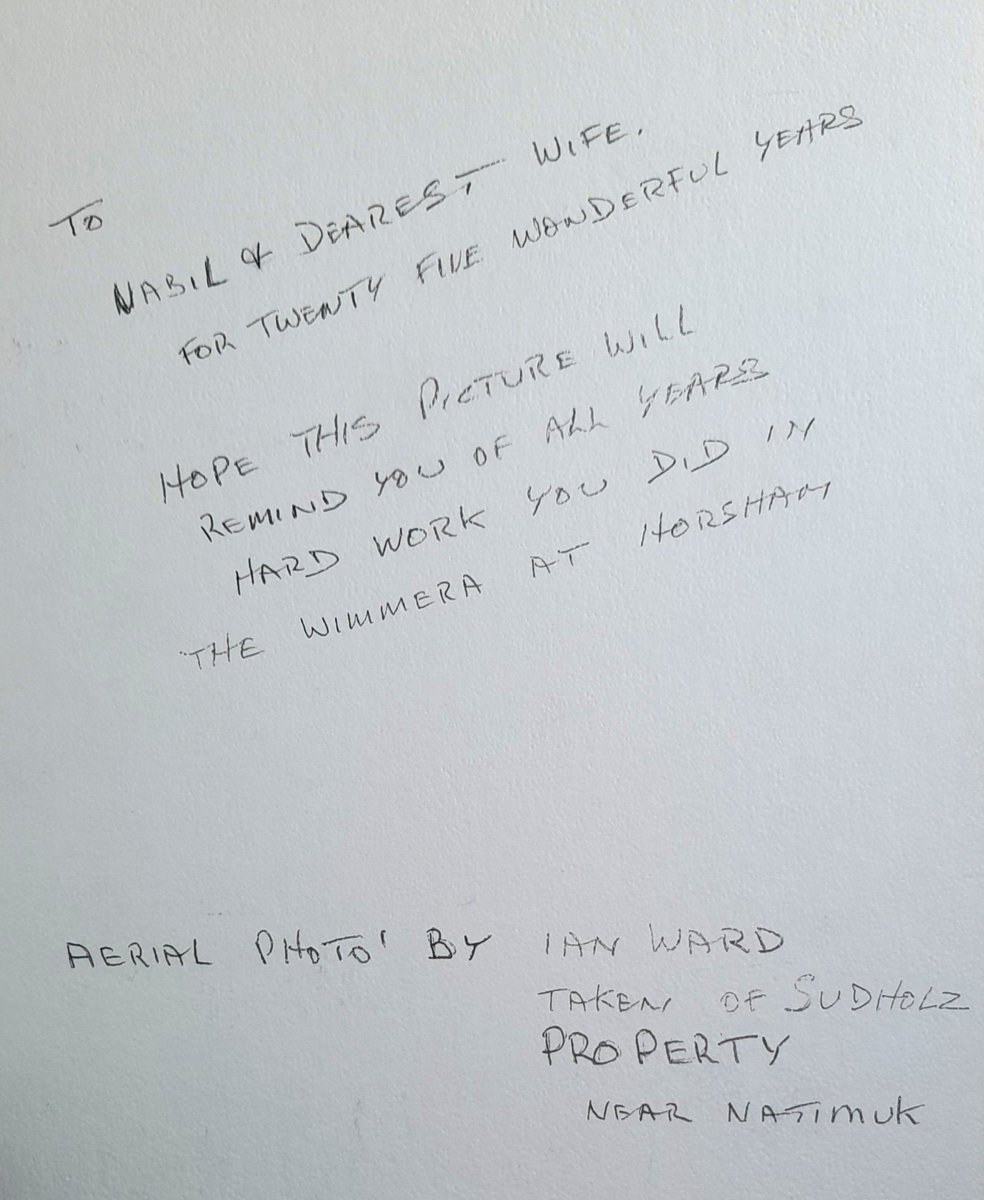 TO
NABIL & DEAREST WIFE.
FOR TWENTY FIVE WONDERFUL YEARS
HOPE THIS PICTURE WILL
REMIND YOU OF ALL YEARS
HARD WORK YOU DID IN
THE WIMMERA AT HORSHAM
AERIAL PHOTO' BY IAN WARD
TAKEN OF SUDHOLZ
PROPERTY
NEAR NATIMUK